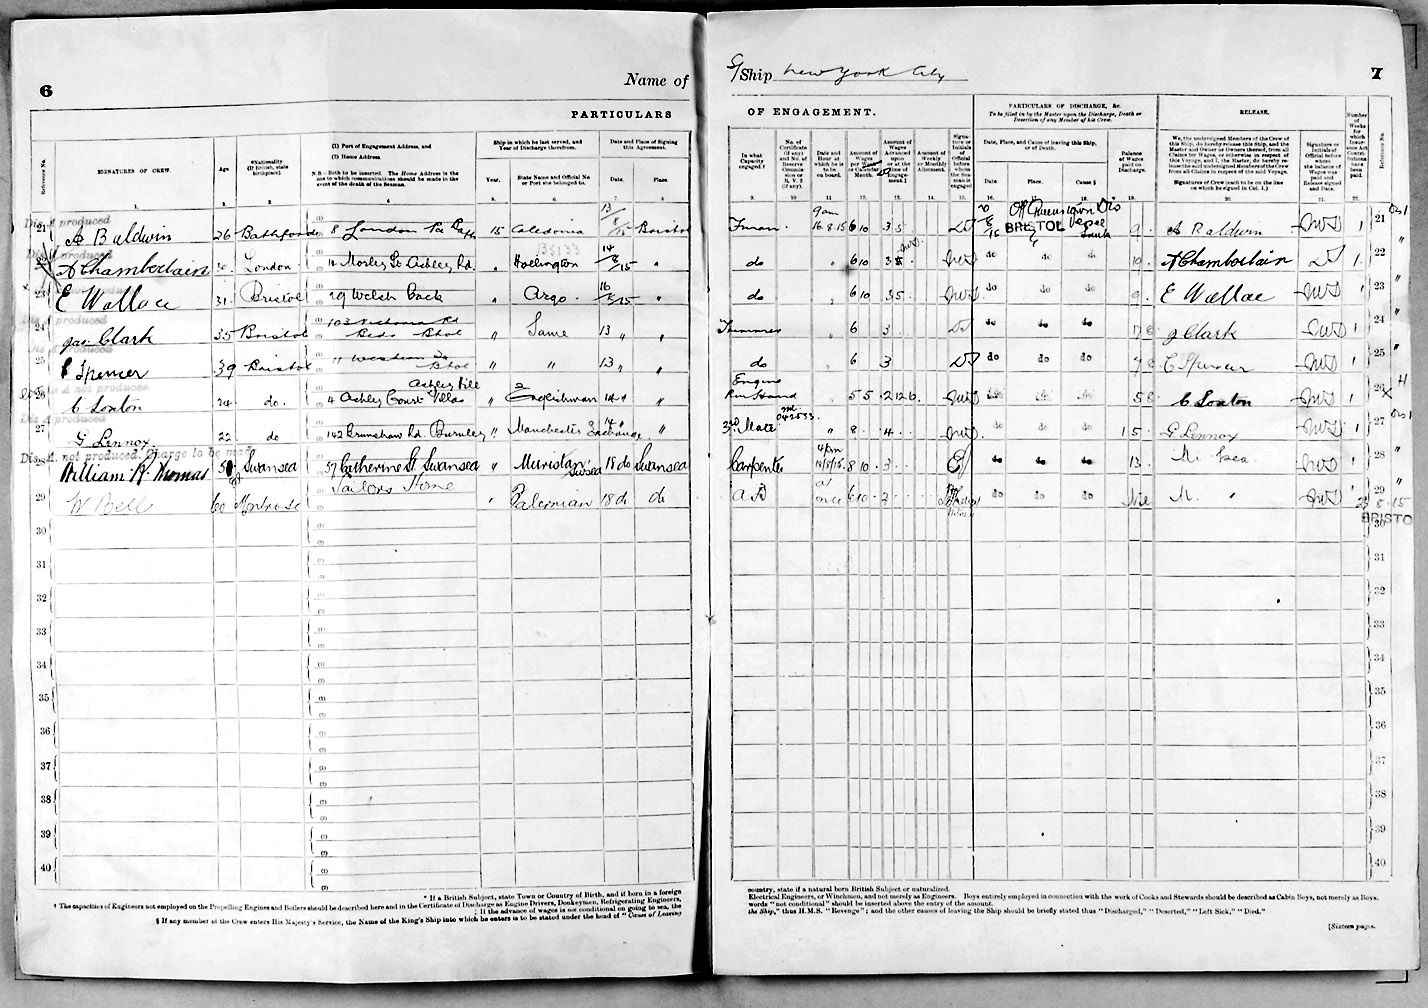 6
Name of
PARTICULARS
Reference No.
SIGNATURES OF CREW.
Age
*Nationality (If British, state birthplace).
(1) Port of Engagement Address, and
(2) Home Address.
N.B - Both to be inserted. The Home Address is the one to which communications should be made in the event of the death of the Seaman.
Ship in which he last served, and Year of Discharge therefrom.
Year.
State Name and Official No or Port she belonged to.
Date and Place of Signing this Agreement.
Date.
Place.
1. 2. 3. 4. 5. 6. 7. 8.
Dis. A produced
21 A Baldwin 26 8 London 15 Caledonia 13/8/15 Bristol
135133
22 A Chamberlain 30 London 14 Morley St Ashley Rd. " Hollington 14/8/15 "
23 E Wallace 31 Bristol 29 Welsh Back " Argo. 16/8/15 "
Dis. A produced
24 Jas. Clark 35 Bristol 103 Victoria Rd Beds Bstol " Same 13 " "
Dis. A produced
25 Spencer 39 Bristol " " 13 " "
Dis A not produced
26 C Loxton 24 do. 4 Ashley Court Villas Ashley Hill " Englishman 14 " "
Dis. A produced
27 G Lennox. 22 do 142 Grimshaw Rd. Burnley " Manchester Exchange 14 " "
Dis. A. not produced. Charge to be made
28 William H. Thomas Swansea 57 Catherine St Swansea " Muristan Swsea 18 do Swansea
29 W Bell 60 Montrose Sailors Home " Palermian 18 do do
30
31
32
33
34
35
36
37
38
39
40
* If a British Subject, state Town or Country of Birth, and if born in a foreign
† The capacities of Engineers not employed on the Propelling Engines and Boilers should be described here and in the Certificate of Discharge as Engine Drivers, Donkeymen, Refrigerating Engineers,
‡ If the advance of wages is not conditional on going to sea, the
§ If any member of the Crew enters His Majesty's Service, the Name of the King's Ship into which he enters is to be stated under the head of "Cause of Leaving
S/Ship New York City
7
OF ENGAGEMENT.
PARTICULARS OF DISCHARGE, &c.
To be filled in by the Master upon the Discharge, Death or Desertion of any Member of his Crew.
RELEASE.
In what Capacity engaged.†
No. of Certificate (if any) and No. of Reserve Commission or R. V. 2 (if any).
Date and Hour at which he is to be on board.
Amount of Wages per Week or Calendar Month.
Amount of Wages Advanced upon or at the time of Engagement.‡
Amount of Weekly or Monthly Allotment.
Signature or Initials of Official before whom the Seaman is engaged
Date, Place, and Cause of leaving this Ship, or of Death.
Date.
Place.
Cause.§
Balance of Wages paid on Discharge.
We, the undersigned Members of the Crew of this Ship, do hereby release this Ship, and the Master and Owner or Owners thereof, from all Claims for Wages, or otherwise in respect of this Voyage, and I, the Master, do hereby release the said undersigned Members of the Crew from all Claims in respect of the said Voyage.
Signatures of Crew (each to be on the line on which he signed in Col. 1.)
Signature or Initials of Official before whom the Balance of Wages was paid and Release signed and Date.
Number of Weeks for which Insurance and Contributions have been paid.
Reference No.
9. 10 11 12. 13. 14. 15. 16. 17. 18. 19. 20. 21. 22.
Fireman. 9am 16.8.15 6 10 3 5 Off Queenstown BRISTOL Vessel Sunk 9 A Baldwin 1 21
do " 6 10 3 5 do do do 10 A Chamberlain 1 22
do " 6 10 3 5 do do do 9 E Wallace 1 23
Trimmer " 6 3 do do do J Clark 1 24
do " 6 3 do do do C Spencer 1 25
Engine Rm Hand " 5 5 2 12 6 do do do C Loxton 1 26
3rd Mate 2nd 042533 " 8 4 do do do 15 G Lennox 1 27
Carpenter 4pm 18/8/15 8 10 3 do do do 13 1 28
A B at once 6 10 3 do do do Nil 29
23 8 15
BRISTO
30
31
32
33
34
35
36
37
38
39
40
country, state if a natural born British Subject or naturalized.
Electrical Engineers, or Winchmen, and not merely as Engineers. Boys entirely employed in connection with the work of Cooks and Stewards should be described as Cabin Boys, not merely as Boys.
words "not conditional" should be inserted above the entry of the amount.
the Ship," thus H.M.S. "Revenge"; and the other causes of leaving the Ship should be briefly stated thus "Discharged," "Deserted," "Left Sick," "Died."
[Sixteen pages.